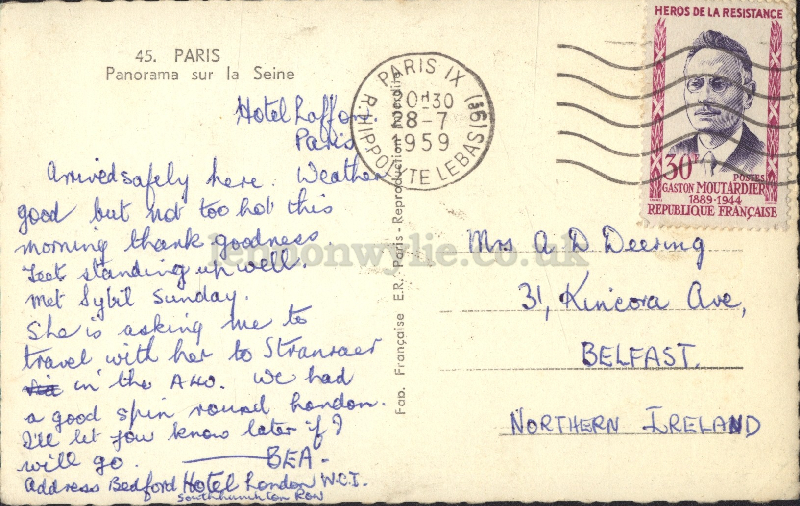 45. PARIS
Panorama sur la Seine
Hotel Laffon.
Paris
Arrived safely here. Weather
good but not too hot this
morning thank goodness.
Feet standing up well.
Met Sybil Sunday.
She is asking me to
travel with her to Stranraer
in the A40. We had
a good spin round London.
I'll let you know later if I
will go. BEA-
Address Bedford Hotel London W.C.I.
Southhamhton Row
Fab. Française E.R. Paris - Reproduction interdite
PARIS IX
20H30
28-7
1959
R. HIPPOLYTE LEBAS (9E)
HEROS DE LA RESISTANCE
30F
POSTES
GASTON MOUTARDIER
1889-1944
REPUBLIQUE FRANÇAISE
Mrs A D Deering
31, Kincora Ave,
BELFAST.
NORTHERN IRELAND
lennonwylie.co.uk